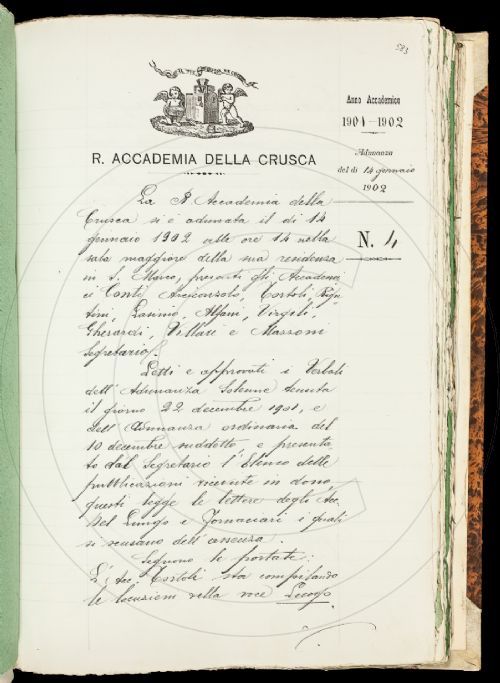 583
IL PIÙ BEL FIOR NE COGLIE
R. ACCADEMIA DELLA CRUSCA
Anno Accademico
1901-1902
Adunanza
del dì 14 gennaio
1902
N. 4
La R. Accademia della
Crusca si è adunata il dì 14
gennaio 1902 alle ore 14 nella
sala maggiore della sua residenza
in S. Marco, presenti gli Accademi
ci Conti Arciconsolo, Tortoli, Rigu
tini, Lasinio, Alfani, Virgili,
Gherardi, Villari e Mazzoni
Segretario.
Letti e approvati i Verbali
dell'Adunanza Solenne tenuta
il giorno 22 decembre 1901, e
dell'Adunanza ordinaria del
10 decembre suddetto, e presenta
to dal Segretario l'Elenco delle
pubblicazioni ricevute in dono,
questi legge le lettere degli Acc.
Del Lungo e Fornaciari i quali
si scusano dell'assenza.
Seguono le portate:
L'Acc. Tortoli sta compilando
le locuzioni della voce Luogo